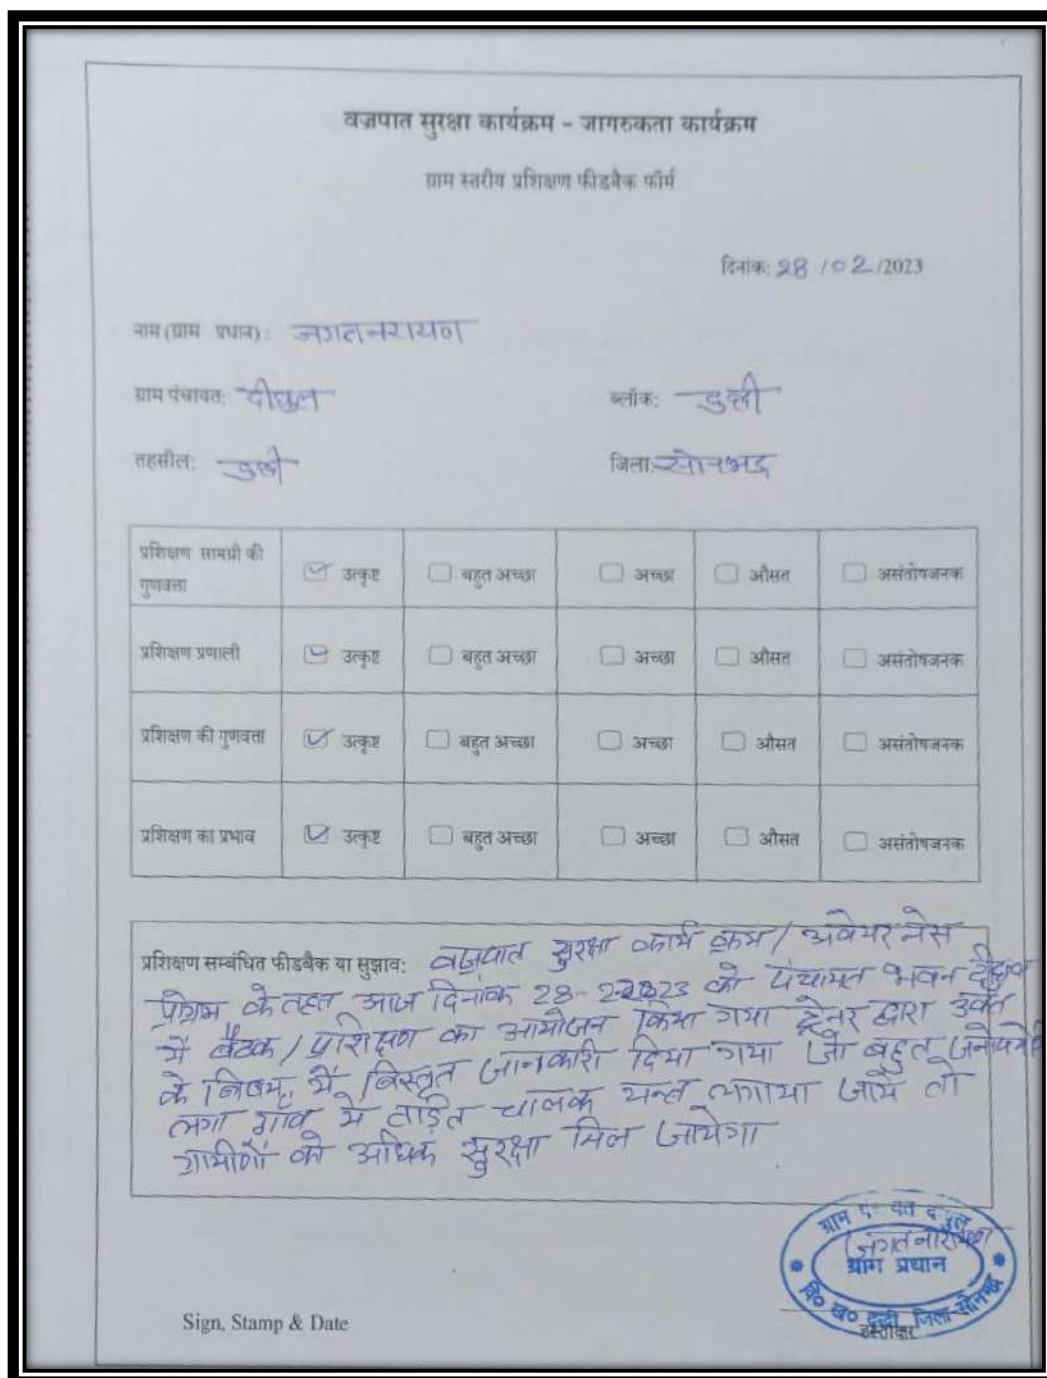 वज्रपात सुरक्षा कार्यक्रम - जागरुकता कार्यक्रम
ग्राम स्तरीय प्रशिक्षण फीडबैक फॉर्म
दिनांक: 28/02/2023
नाम (ग्राम प्रधान): जगतनरायण
ग्राम पंचायत: दीघुल ब्लॉक: दुद्धी
तहसील: दुद्धी जिला: सोनभद्र
प्रशिक्षण सामग्री की गुणवत्ता उत्कृष्ट बहुत अच्छा अच्छा औसत असंतोषजनक
प्रशिक्षण प्रणाली उत्कृष्ट बहुत अच्छा अच्छा औसत असंतोषजनक
प्रशिक्षण की गुणवत्ता उत्कृष्ट बहुत अच्छा अच्छा औसत असंतोषजनक
प्रशिक्षण का प्रभाव उत्कृष्ट बहुत अच्छा अच्छा औसत असंतोषजनक
प्रशिक्षण सम्बंधित फीडबैक या सुझाव: वज्रपात सुरक्षा कार्य क्रम / अवेयर नेस
प्रोग्राम के तहत आज दिनांक 28-2-2023 को पंचायत भवन दीघुल
में बैठक / प्रशिक्षण का आयोजन किया गया ट्रेनर द्वारा उक्त
के विषय में विस्तृत जानकारी दिया गया जो बहुत
लगा गाँव में तड़ित चालक यन्त्र लगाया जाये तो
ग्रामीणों को अधिक सुरक्षा मिल जायेगा
ग्राम
जगतनारायण
ग्राम प्रधान
वि० ख० दुद्धी जिला-सोनभद्र
हस्ताक्षर
Sign, Stamp & Date